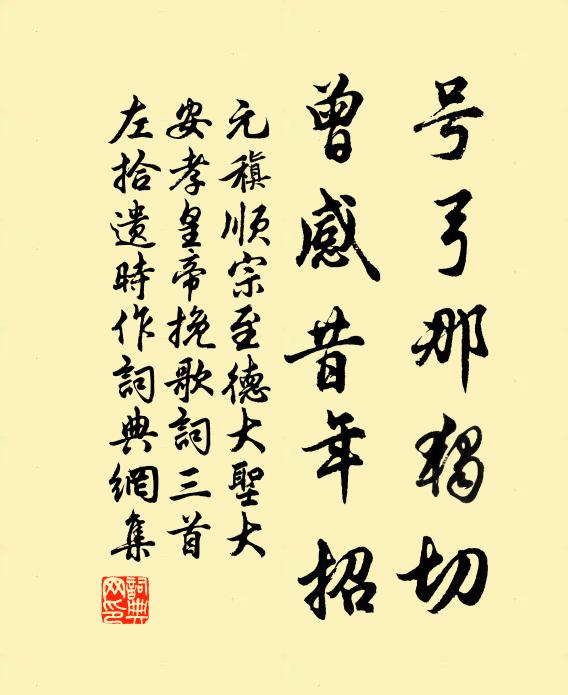 号弓那独切
曾感昔年招
元稹顺宗至德大聖大
安孝皇帝挽歌詞三首
左拾遗時作詞典網集
詞典網印